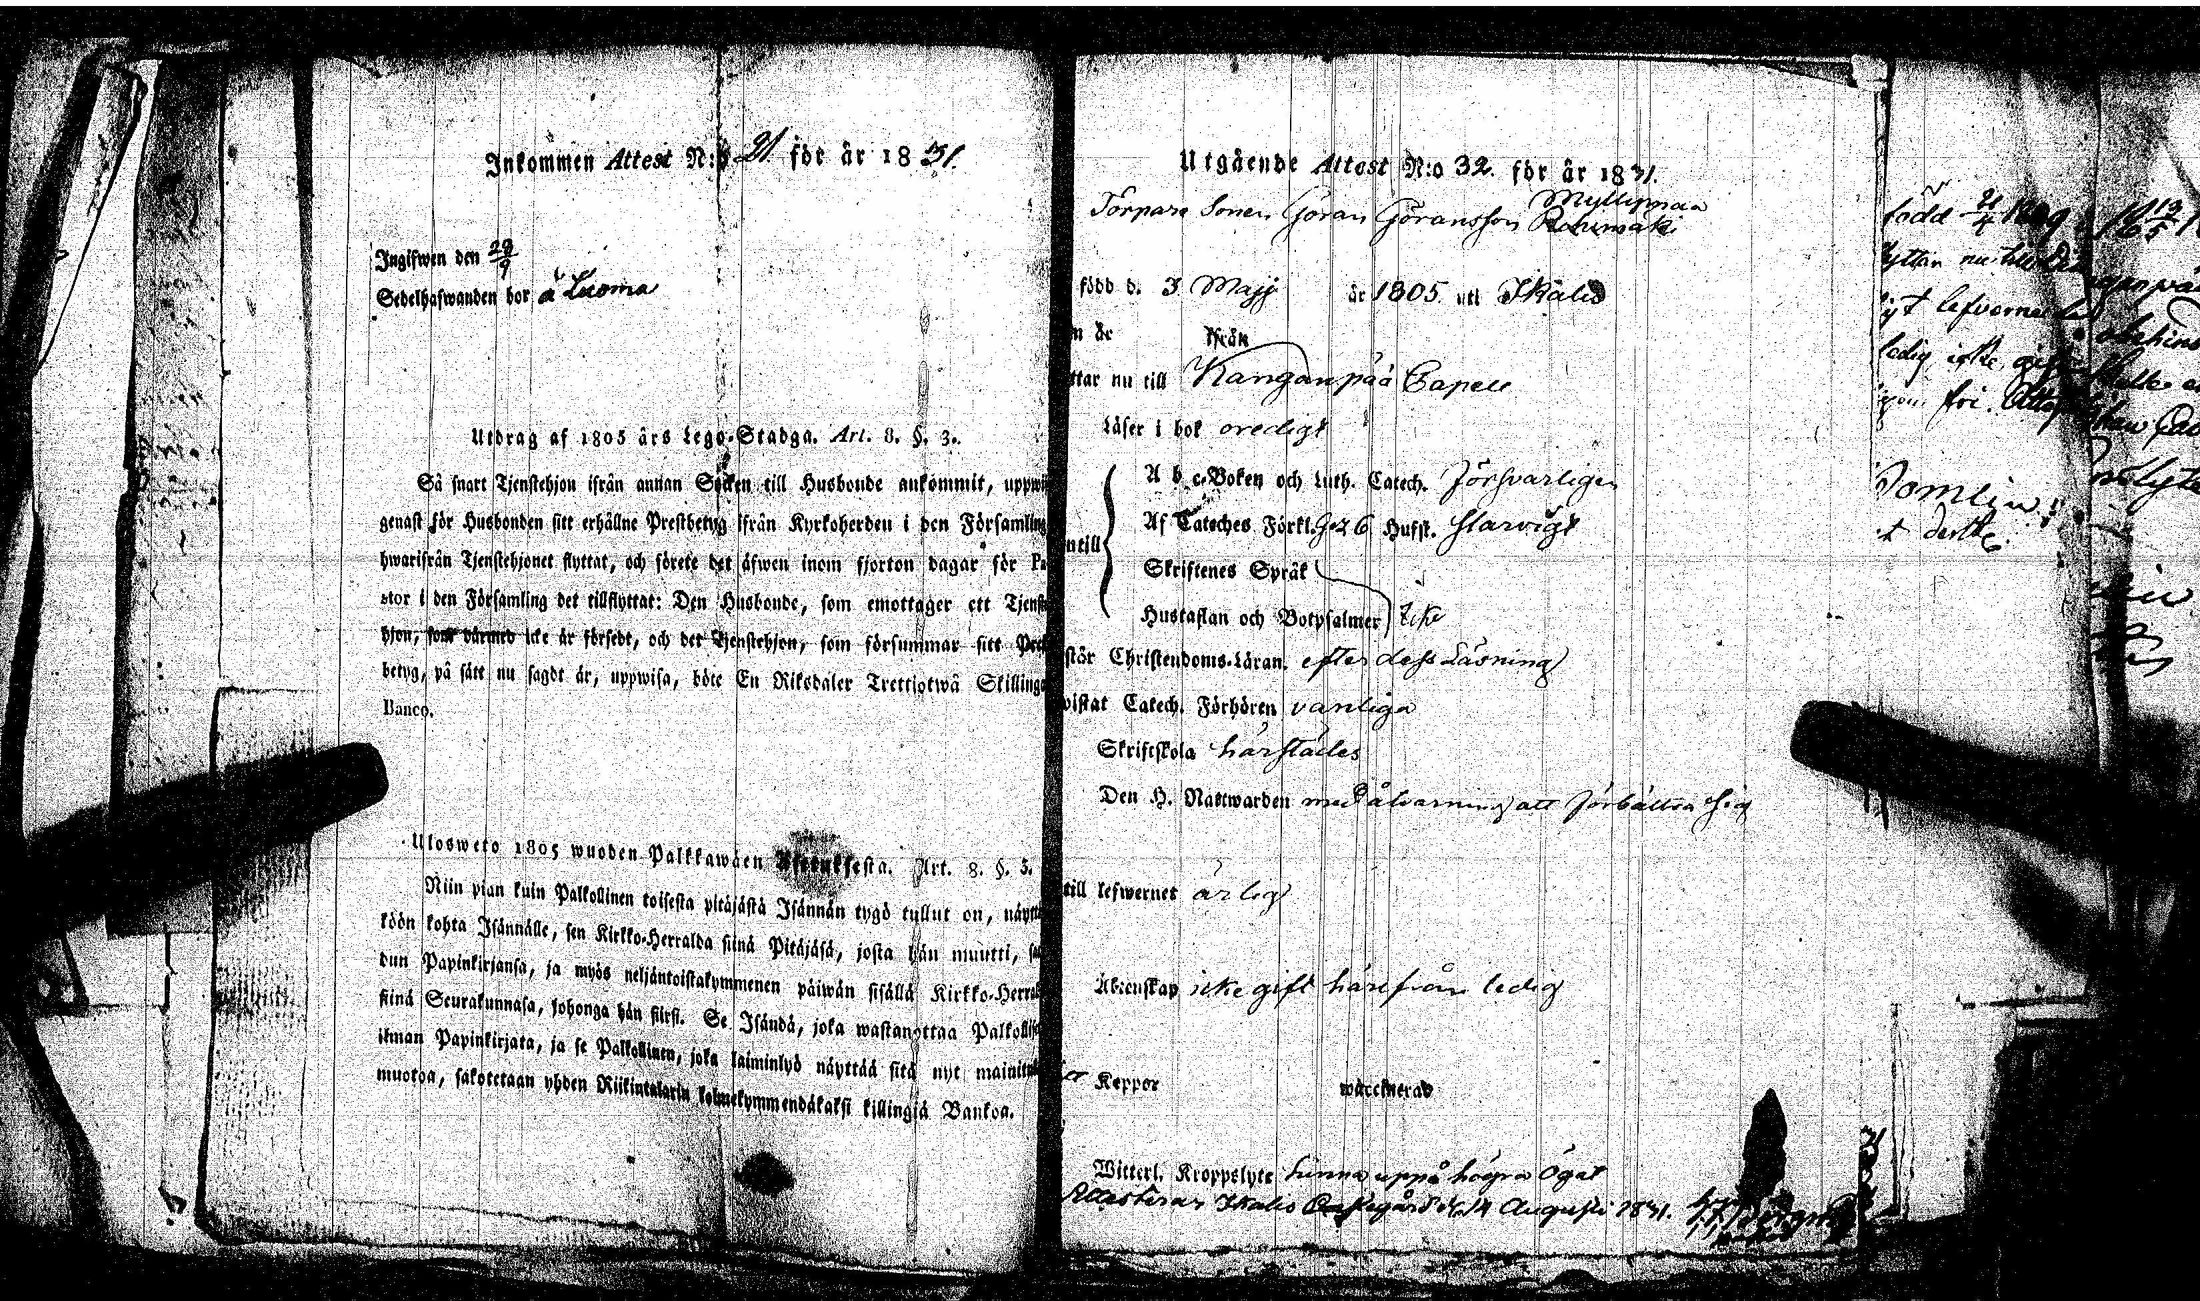 Inkommen Attest N:o 21 för år 1831.
Ingifwen den 28/9
Sedelhafwanden bor å Luoma
Utdrag af 1805 års Lego-Stadga. Art. 8. §. 3.
Så snart Tjenstehjon ifrån annan Socken till Husbonde ankommit, uppwi
genast för Husbonden sitt erhållne Prestbetyg ifrån Kyrkoherden i den Församling
hwarifrån Tjenstehjonet flyttat, och förete det äfwen inom fjorton dagar för Pa
stor i den Församling det tillflyttat: Den Husbonde, som emottager ett Tjenste
hjon, som därmed icke är försedt, och det Tjenstehjon, som försummar sitt Prest
betyg, på sätt nu sagdt är, uppwisa, böte En Riksdaler Trettiotwå Skillingar
Banco.
Ulosweto 1805 wuoden Palkkawäen Asetuksesta. Art. 8. §. 3.
Niin pian kuin Palkollinen toisesta pitäjästä Isännän tygö tullut on, näyttä
köön kohta Isännälle, sen Kirkko-Herralda siinä Pitäjäsä, josta hän muutti, saa
dun Papinkirjansa, ja myös neljäntoistakymmenen päiwän sisällä Kirkko-Herral
siinä Seurakunnasa, johonga hän siirsi. Se Isändä, joka wastanottaa Palkollise
ilman Papinkirjata, ja se Palkollinen, joka laiminlyö näyttää sitä nyt mainitul
muotoa, sakotetaan yhden Riikintalarin kolmekymmendäkaksi killingiä Bankoa.
Utgående Attest N:o 32. för år 1831.
Myllymaa
Torpare Sonen Göran Göransson Rahumäki
född d. 3 Maji år 1805 uti Ikalis
n är ifrån
ttar nu till Kanganpää Capell
Läser i bok oredigt
A b c-Boken och Luth. Catech. försvarligen
Af Cateches Förkl. 5 et 6 Hufst. slarvigt
ntill
Skriftenes Språk
Hustaflan och Botpsalmer icke
står Christendoms-Läran efter dess Läsning
vistat Catech. Förhören vanliga
Skriftskola härstädes
Den H. Nattwarden med alvarning att förbättra sig
till lefwernet ärlig
Äktenskap icke gift härifrån ledig
Koppor waccinerad
Witterl. Kroppslyte hinna uppå högra Ögat
Attesterar Ikalis Prestegård d. 14 Augusti 1831.
född 21/4
lefverne
ledig icke
fri.